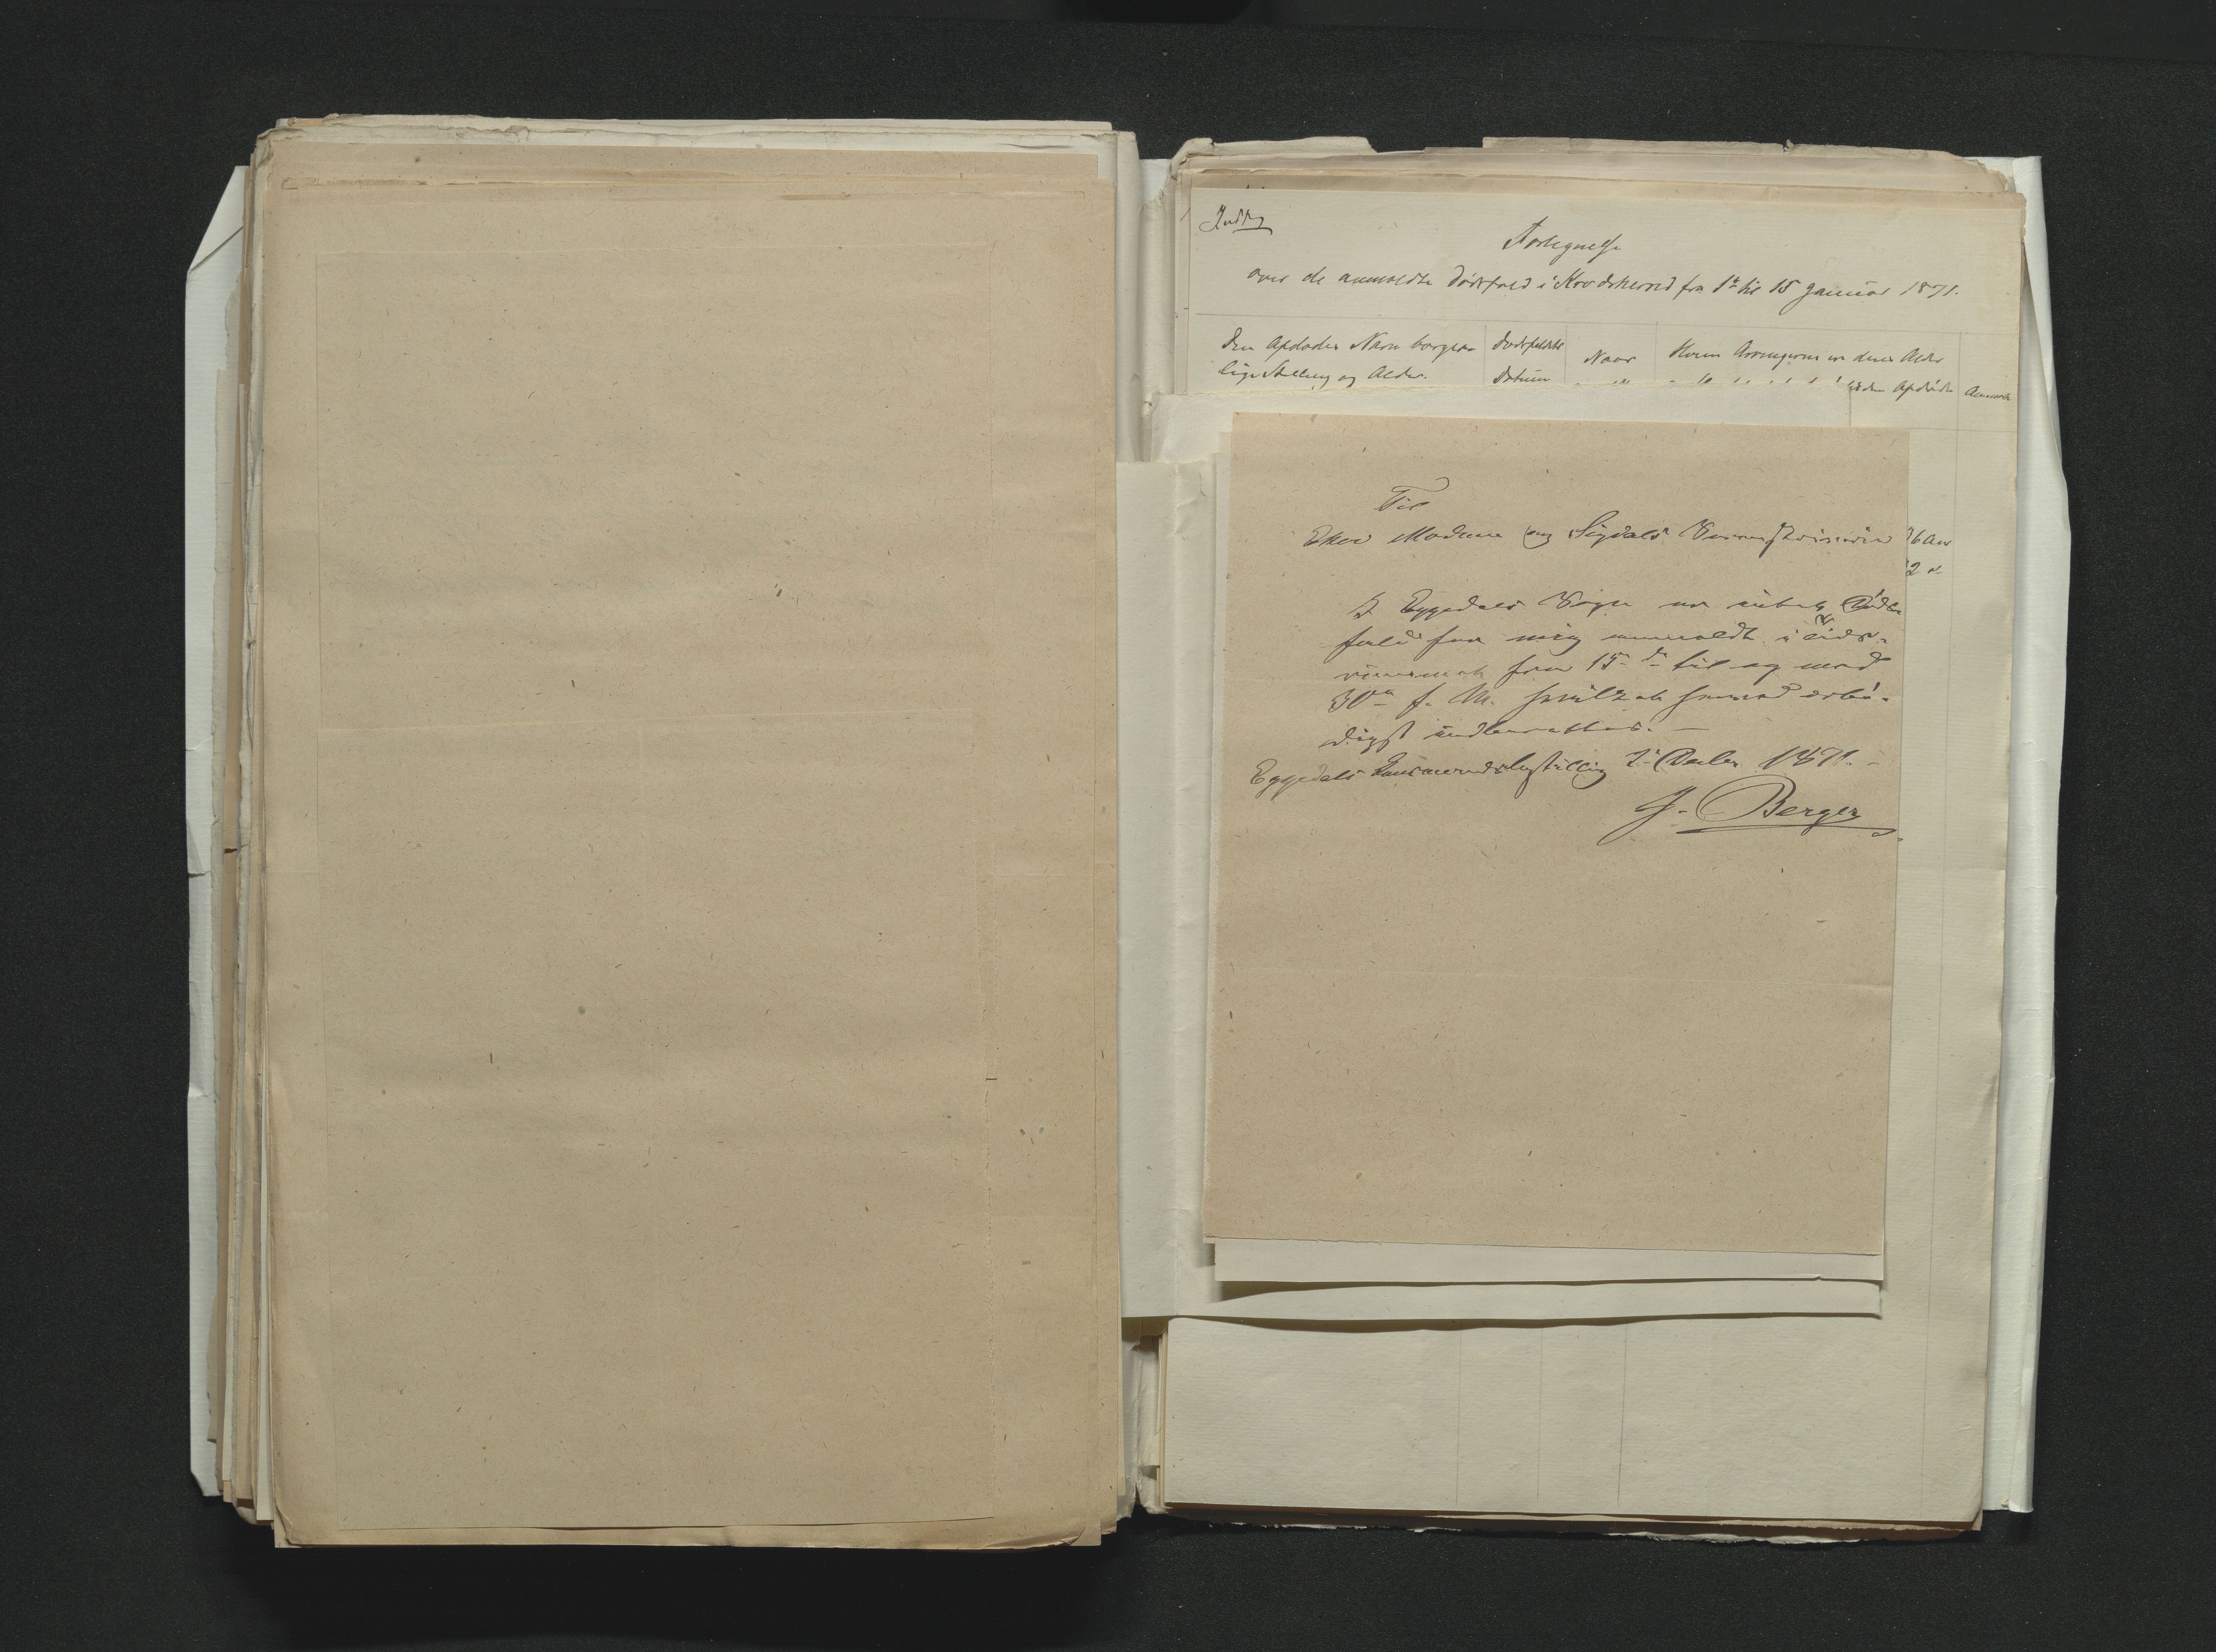 Fortegnelse
over de anmeldte Dødsfald i Krødsherred fra 1ste til 15 Januar 1871.
Den Afdødes Navn borger-
lige Stilling og Alder.
Dødsfaldets
Datum
Naar
Hvem Arvingerne ere deres Alder
den Afdøde
Anmærk
Til
Eker Modum og Sigdals Sorenskriveri
I Eggedals Sogn er intet Døds-
fald for mig anmeldt i Tids-
rummet fra 15de til og med
30te f. M. hvilket herved erbø-
digst indberettes. —
Eggedals Lensmandsbestilling 2 Decbr 1871. -
J. Berger